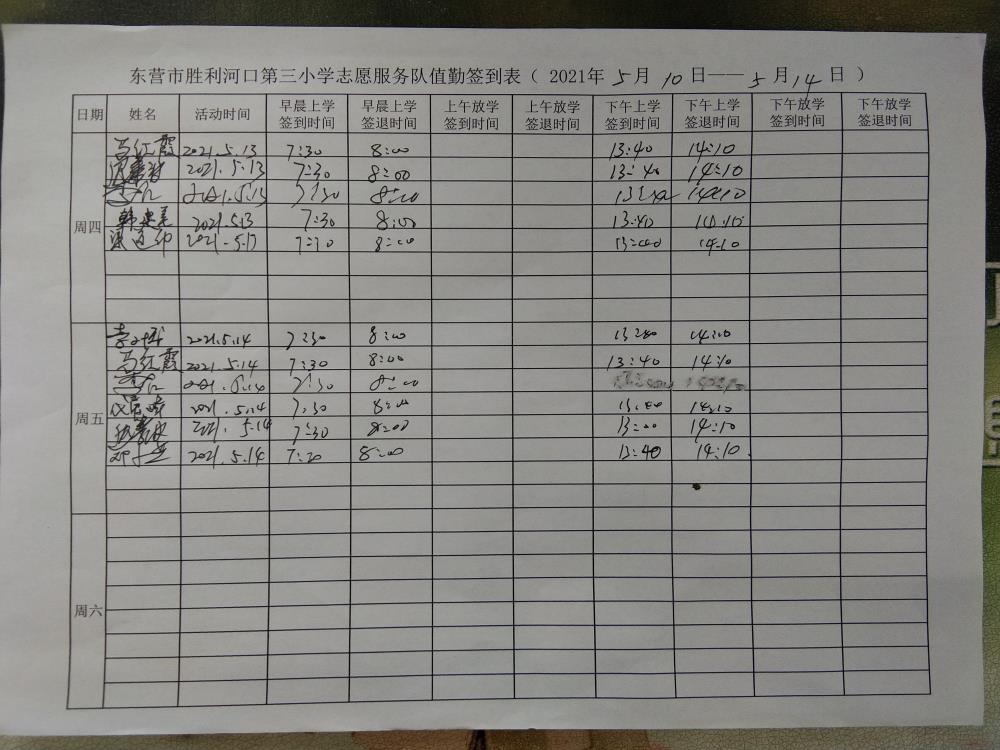 东营市胜利河口第三小学志愿服务队值勤签到表（ 2021年 5月 10日——5月14日 ）
日期 姓名 活动时间 早晨上学签到时间 早晨上学签退时间 上午放学签到时间 上午放学签退时间 下午上学签到时间 下午上学签退时间 下午放学签到时间 下午放学签退时间
周四
马红霞 2021.5.13 7:30 8:00 13:40 14:10
2021.5.13 7:30 8:00 13:40 14:10
2021.5.13 7:30 8:00 13:40 14:10
2021.5.13 7:30 8:00 13:40 14:10
7:30 8:00 13:40 14:10
周五
2021.5.14 7:30 8:00 13:40 14:10
马红霞 2021.5.14 7:30 8:00 13:40 14:10
2021.5.14 7:30 8:00
2021.5.14 7:30 8:00 13:40 14:10
2021.5.14 7:30 8:00 14:10
2021.5.14 7:20 8:00 13:40 14:10
周六